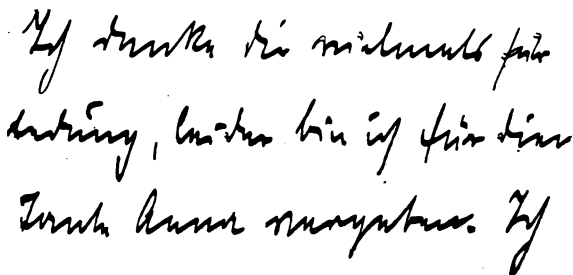 Ich danke dir vielmals für
ladung, leider bin ich für dien
Tante Anna vergeben. Ich